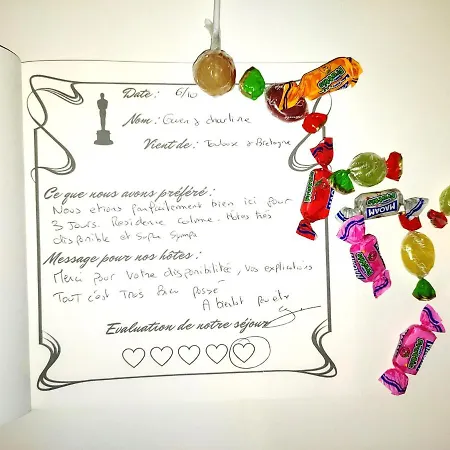 Date : 6/10
Nom : Gwen & charline
Vient de : Toulouse & Bretagne
Ce que nous avons préféré :
Nous étions parfaitement bien ici pour
3 Jours. Résidence calme. hôtes très
disponible et Supra Sympa
Message pour nos hôtes :
Merci pour votre disponibilité, vos explications
TOUT c'est Très Bien passé
A bientôt peut être
Evaluation de notre séjour
MAOAM